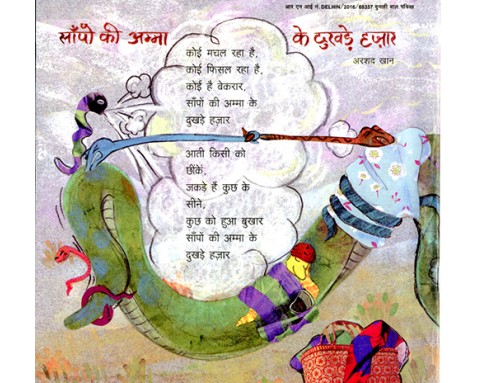 आर एन आई नं. DELHIN/2016/69357 युनकी बाल पत्रिका
साँपों की अम्मा के दुखड़े हज़ार
अरशद खान
कोई मचल रहा है,
कोई फिसल रहा है,
कोई है बेकरार,
साँपों की अम्मा के
दुखड़े हज़ार
आती किसी को
छींकें,
जकड़े हैं कुछ के
सीने,
कुछ को हुआ बुखार
साँपों की अम्मा के
दुखड़े हज़ार